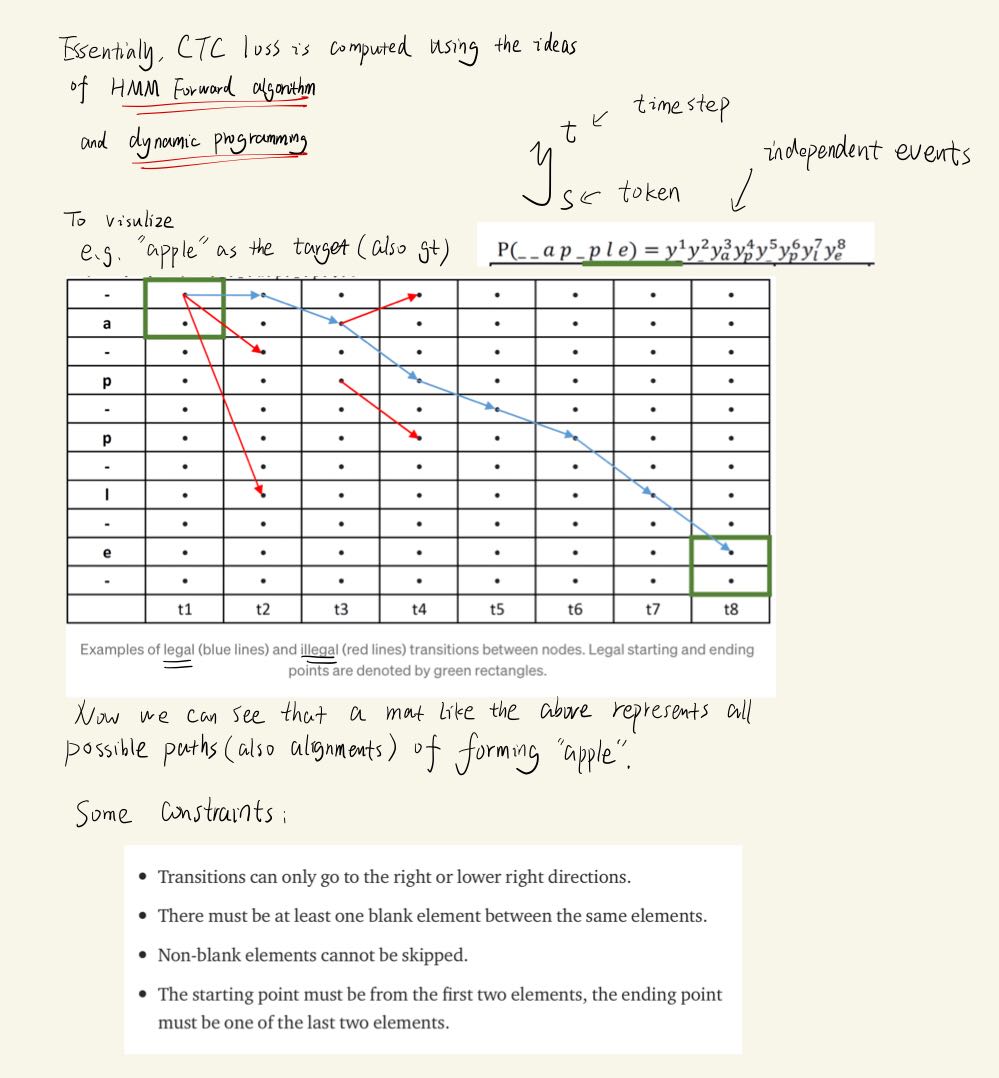 Essentialy, CTC loss is computed using the ideas
of HMM Forward algorithm
and dynamic programming
timestep
y t
s
token
independent events
To visulize
e.g. "apple" as the target (also gt)
P(_ _ a p _ p l e) = y¹_y²_y³ₐy⁴ₚy⁵_y⁶ₚy⁷ₗy⁸ₑ
-
a
-
p
-
p
-
l
-
e
-
t1 t2 t3 t4 t5 t6 t7 t8
Examples of legal (blue lines) and illegal (red lines) transitions between nodes. Legal starting and ending
points are denoted by green rectangles.
Now we can see that a mat like the above represents all
possible paths (also alignments) of forming "apple".
Some constraints:
• Transitions can only go to the right or lower right directions.
• There must be at least one blank element between the same elements.
• Non-blank elements cannot be skipped.
• The starting point must be from the first two elements, the ending point
must be one of the last two elements.